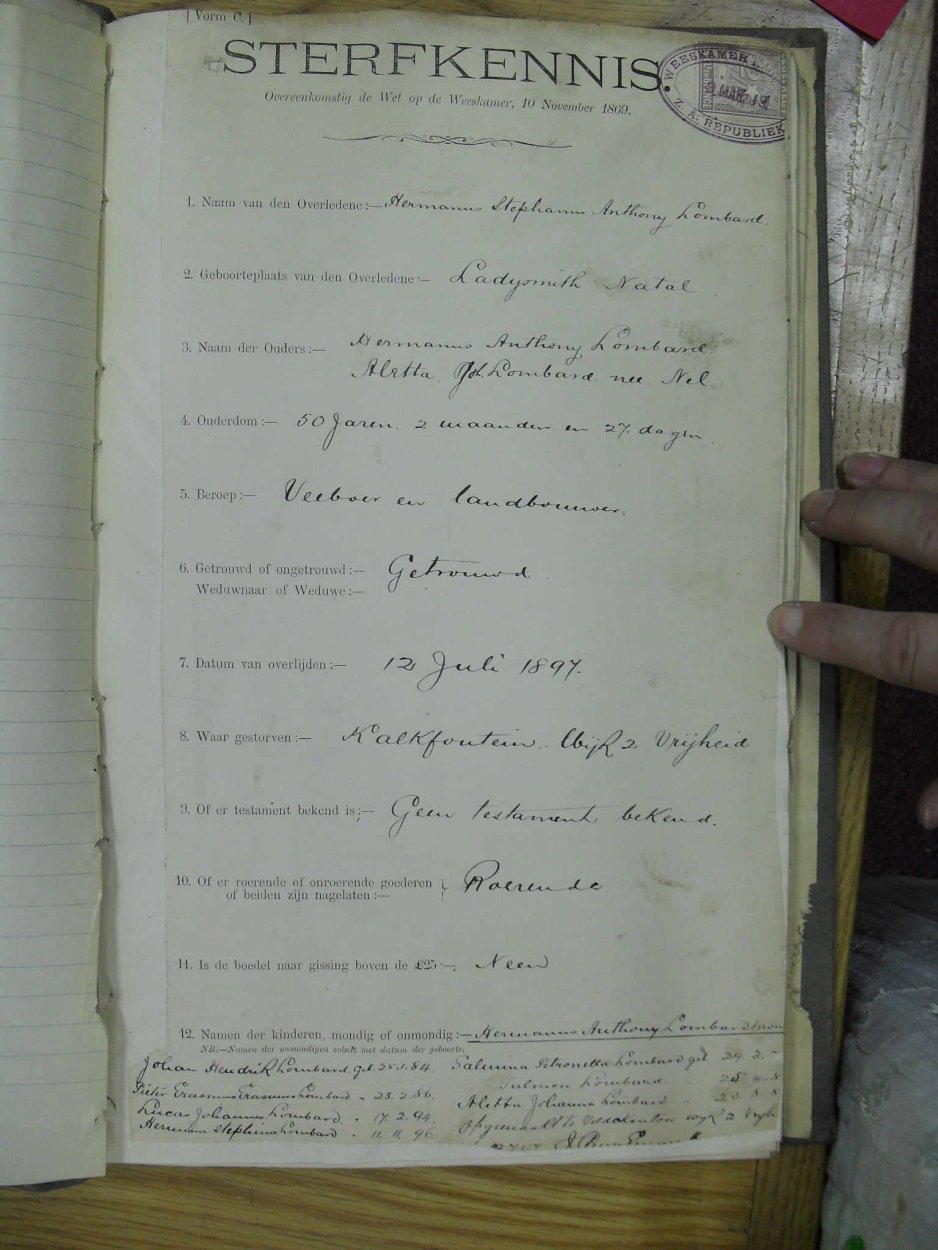 [Vorm C.]
STERFKENNIS.
WEESKAMER
MAR
Z. A. REPUBLIEK
Overeenkomstig de Wet op de Weeskamer, 10 November 1869.
1. Naam van den Overledene:— Hermanus Stephanus Anthony Lombard.
2. Geboorteplaats van den Overledene:— Ladysmith Natal
3. Naam der Ouders:— Hermanus Anthony Lombard
Aletta Joh. Lombard nee Nel.
4. Ouderdom:— 50 Jaren. 2 maanden en 27 dagen
5. Beroep:— Veeboer en landbouwer.
6. Getrouwd of ongetrouwd:— Getrouwd.
Weduwnaar of Weduwe:—
7. Datum van overlijden:— 12 Juli 1897.
8. Waar gestorven:— Kalkfontein. Wijk 2 Vrijheid
9. Of er testament bekend is:— Geen testament bekend.
10. Of er roerende of onroerende goederen } Roerende
of beiden zijn nagelaten:—
11. Is de boedel naar gissing boven de £25:— Neen
12. Namen der kinderen, mondig of onmondig:— Hermanus Anthony Lombard
NB.—Namen der onmondigen voluit met datum der geboorte.
Johan Hendrik Lombard geb 25.1.84. Salmina Petronella Lombard geb 24.2.
Pieter Erasmus Erasmus Lombard " 23.2.86. Sulmon Lombard.
Lucas Johannes Lombard. " 17.2.94. Aletta Johanna Lombard
Hermina Stephina Lombard " 11.11.96. Opgemaakt te wijk 2